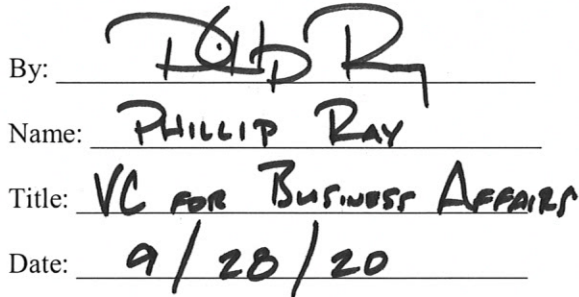 By:
Name: PHILLIP RAY
Title: VC FOR BUSINESS AFFAIRS
Date: 9/28/20